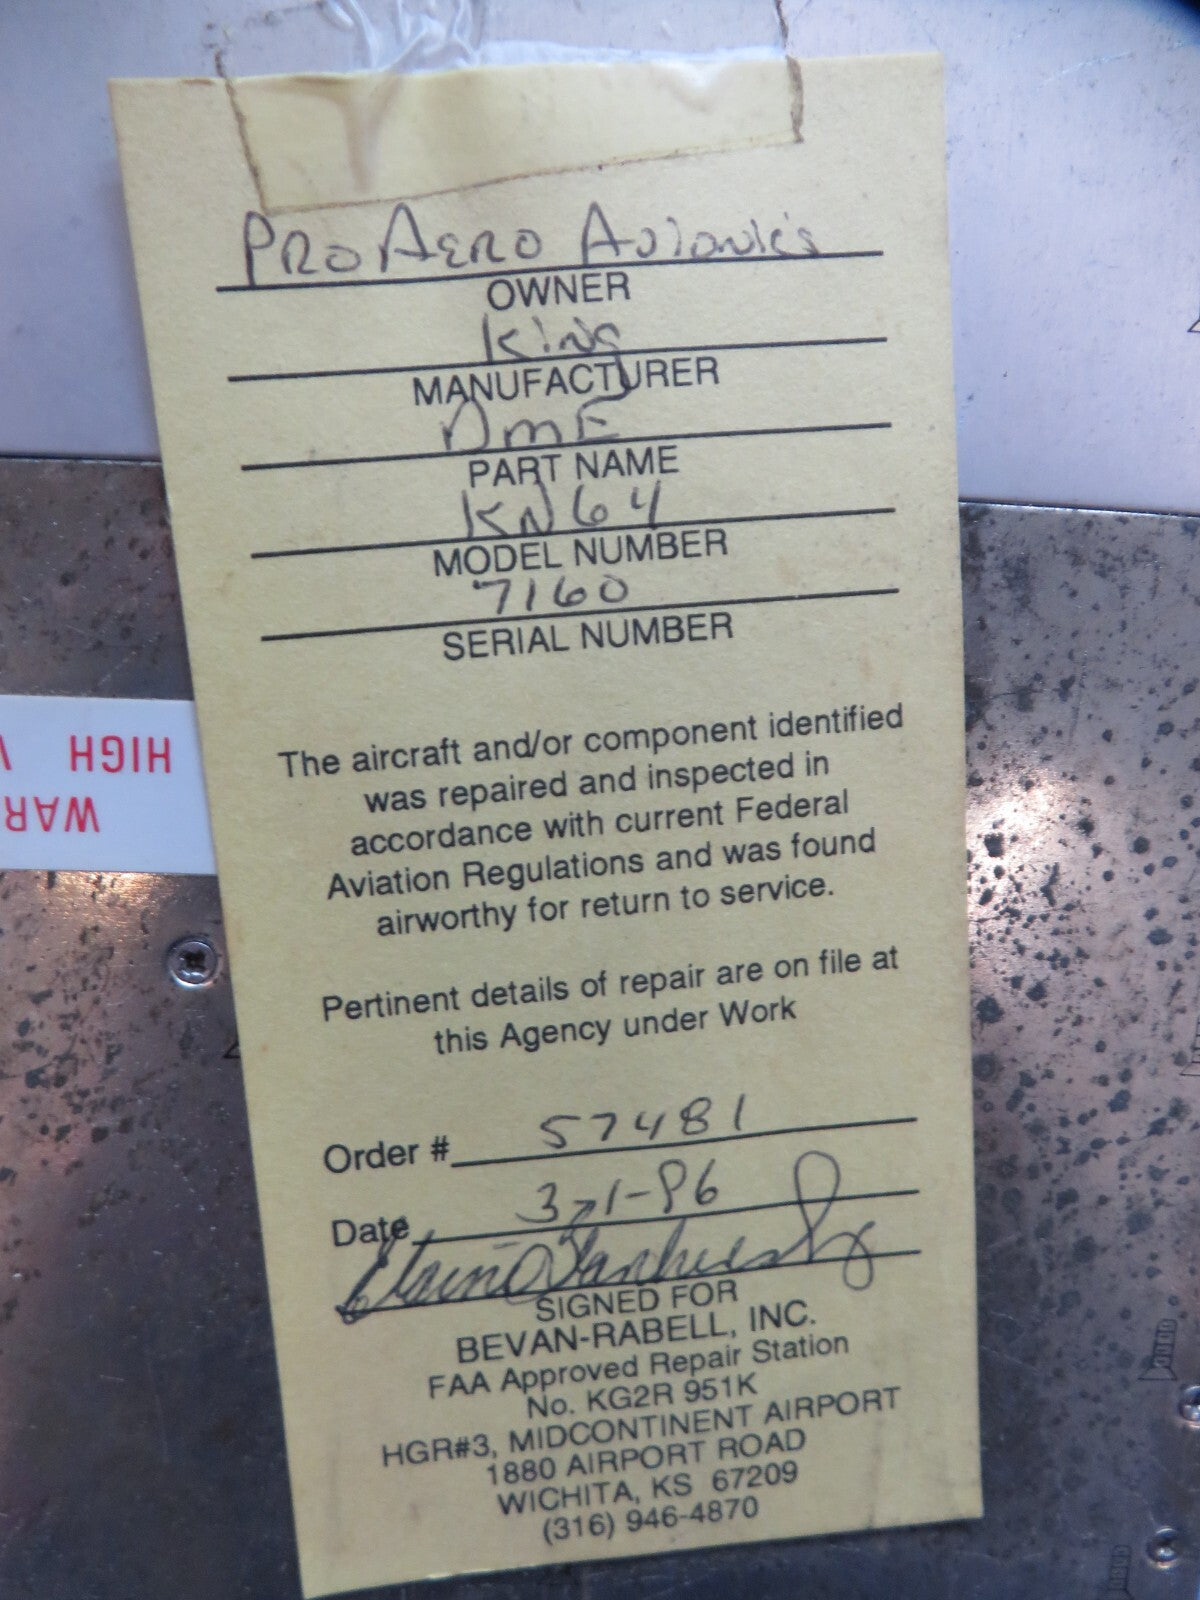 PRO AERO AVIONICS
OWNER
King
MANUFACTURER
DME
PART NAME
KN64
MODEL NUMBER
7160
SERIAL NUMBER
The aircraft and/or component identified
was repaired and inspected in
accordance with current Federal
Aviation Regulations and was found
airworthy for return to service.
Pertinent details of repair are on file at
this Agency under Work
Order # 57481
Date 3-1-96
SIGNED FOR
BEVAN-RABELL, INC.
FAA Approved Repair Station
No. KG2R 951K
HGR#3, MIDCONTINENT AIRPORT
1880 AIRPORT ROAD
WICHITA, KS 67209
(316) 946-4870
HIGH